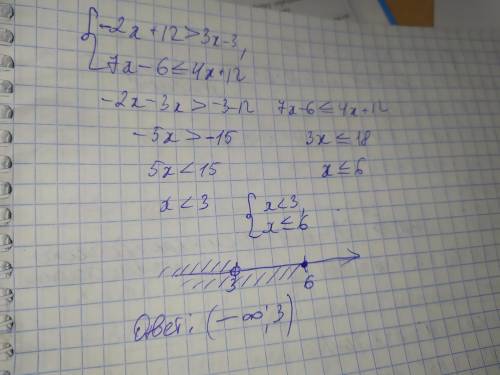 { -2x+12>3x-3,
7x-6≤4x+12
-2x-3x>-3-12 7x-6≤4x+12
-5x>-15 3x≤18
5x<15 x≤6
x<3 { x<3,
x≤6
3 6
Ответ: (-∞; 3)